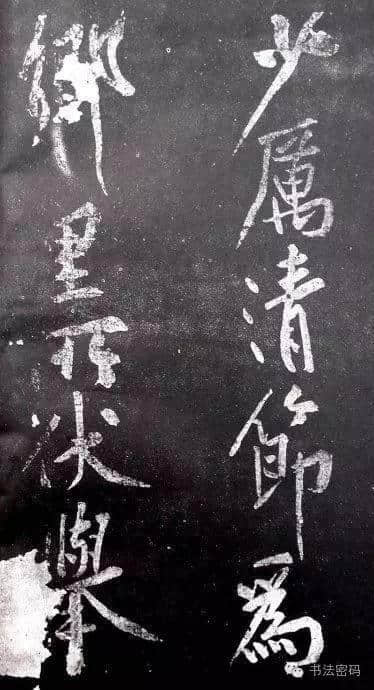 少厲清節爲
鄉里所伏舉
书法密码